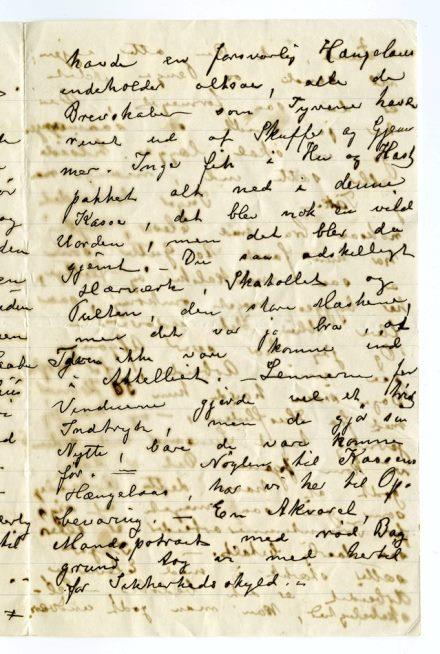 havde en forsvarlig Hængelaas
indeholder altsaa, alle de
Brevskaber som Tyvene havde
revet ud af Skuffer og Gjem-
mer. Inge fik i Hu og Hast
pakket alt ned i denne
Kasse, det blev nok en vild
Uorden, men det blev da
gjemt. — Du saa adskilligt
Hærværk, Skatollet og
Pulten, den store Maskine,
men det var jo bra, at
Tyven ikke var komne ind
i Attelliet. — Lemmerne for
Vinduerne gjorde vel et
Indtryk, men de gjør sin
Nytte, bare de vare komne
for. — Nøglen til Kassens
Hængelaas, har vi her til Op-
bevaring. — En Akvarel,
Mandsportræt med rød Bag
grund tog vi med hertil
for Sikkerheds skyld. —